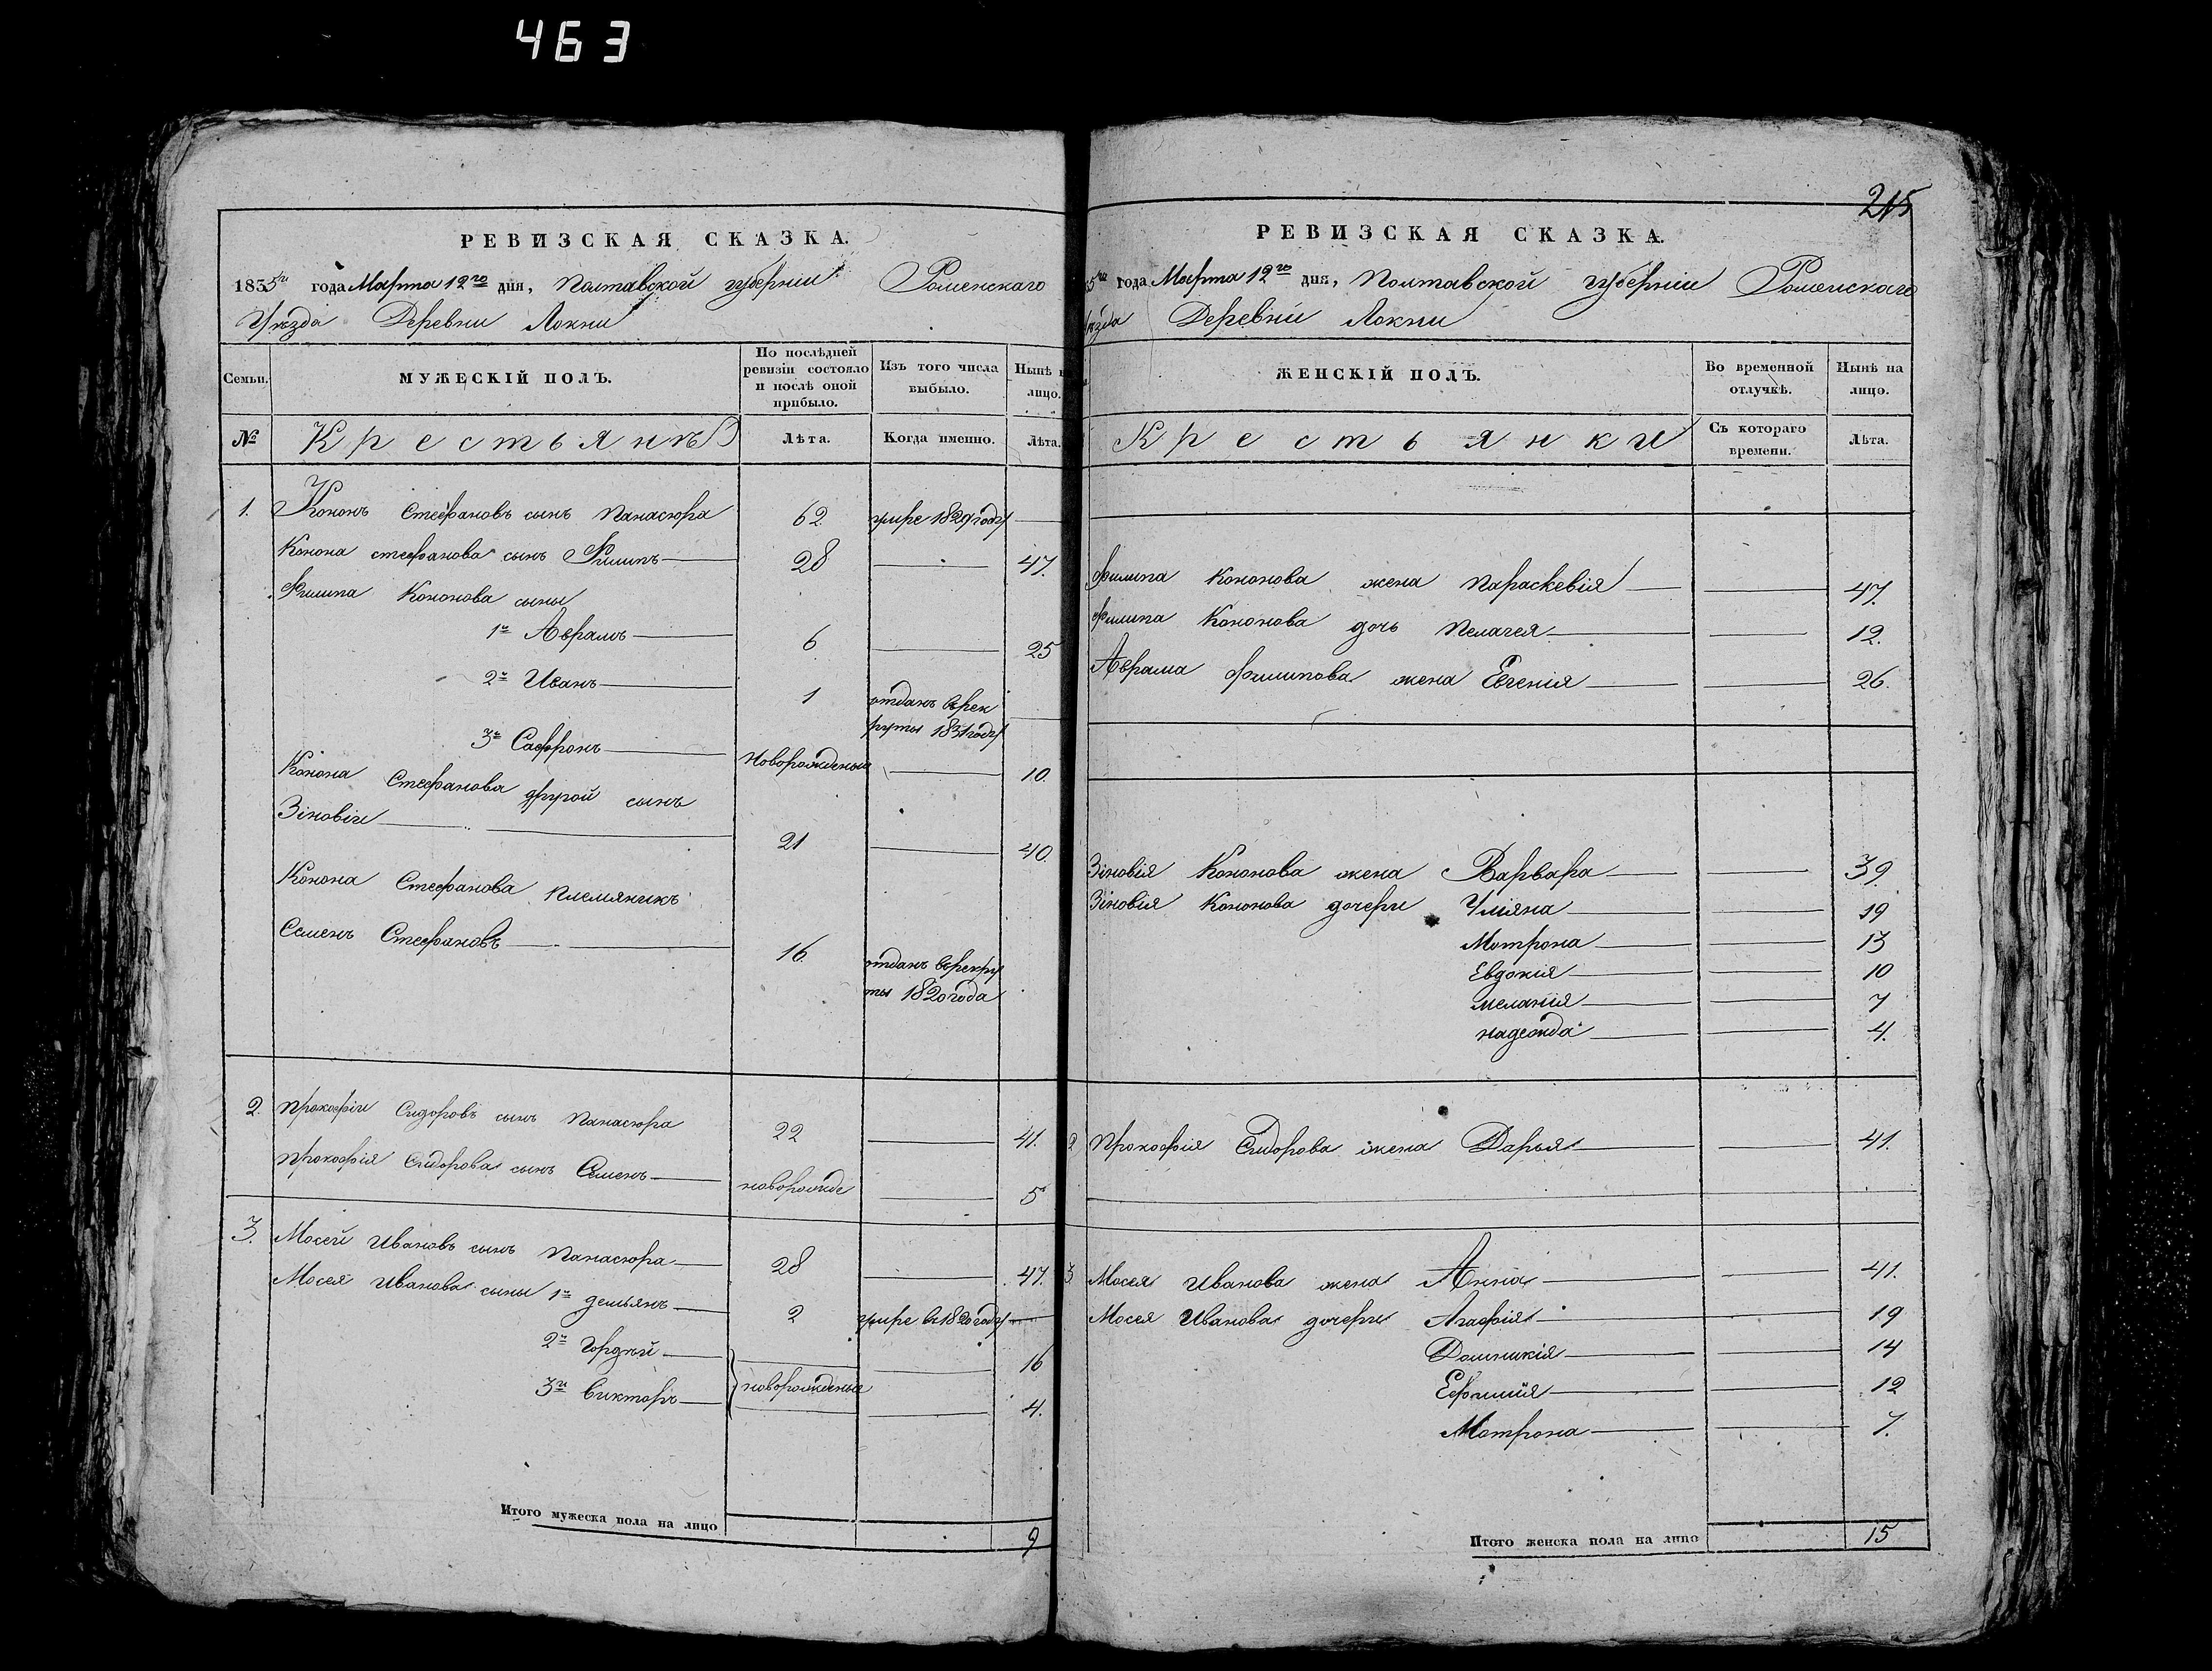 463
РЕВИЗСКАЯ СКАЗКА.
1835го года Марта 12го дня, Полтавской губерніи Роменскаго
Уѣзда Деревни Локни
Семьи. МУЖЕСКІЙ ПОЛЪ. По послѣдней ревизіи состояло и послѣ оной прибыло. Изъ того числа выбыло. Нынѣ н лицо.
№ Крестьянъ Лѣта. Когда именно. Лѣта.
1. Кононъ Стефановъ сынъ Панасюра 62 умре 1829 году
Конона стефанова сынъ Филипъ 28 47.
Филипа Кононова сыны
1й Аврамъ 6 25
2й Иванъ 1 отданъ врек
руты 1831 году
3й Сафронъ новорожденый 10.
Конона Стефанова другой сынъ
Зіновіи 21 40.
Конона Стефанова племяникъ
Семенъ Стефановъ 16 отданъ врекру
ты 1820 года
2. Прокофіи Сидоровъ сынъ Панасюра 22 41.
Прокофія Сидорова сынъ Семенъ новорожде 5
3. Мосей Ивановъ сынъ Панасюра 28 47.
Мосея Иванова сыны 1й демьянъ 2 умре в 1820 году
2й Гордѣй 16
новорожденые
3й Викторъ 4.
Итого мужеска пола на лицо 9
215
РЕВИЗСКАЯ СКАЗКА.
5го года Марта 12го дня, Полтавской губерніи Роменскаго
ѣзда Деревни Локни
ЖЕНСКІЙ ПОЛЪ. Во временной отлучкѣ. Нынѣ на лицо.
Крестьянки Съ котораго времени. Лѣта.
Филипа Кононова жена Параскевія 47.
Филипа Кононова дочь Пелагея 12.
Аврама Филипова жена Евгенія 26.
Зіновія Кононова жена Варвара 39.
Зіновія Кононова дочери Уліяна 19
Мотрона 13
Евдокія 10
меланія 7
надежда 4.
2 Прокофія Сидорова жена Дарья 41.
3 Мосея Иванова жена Анна 41.
Мосея Иванова дочери Агафія 19
Домникія 14
Ефимія 12
Мотрона 7.
Итого женска пола на лицо 15